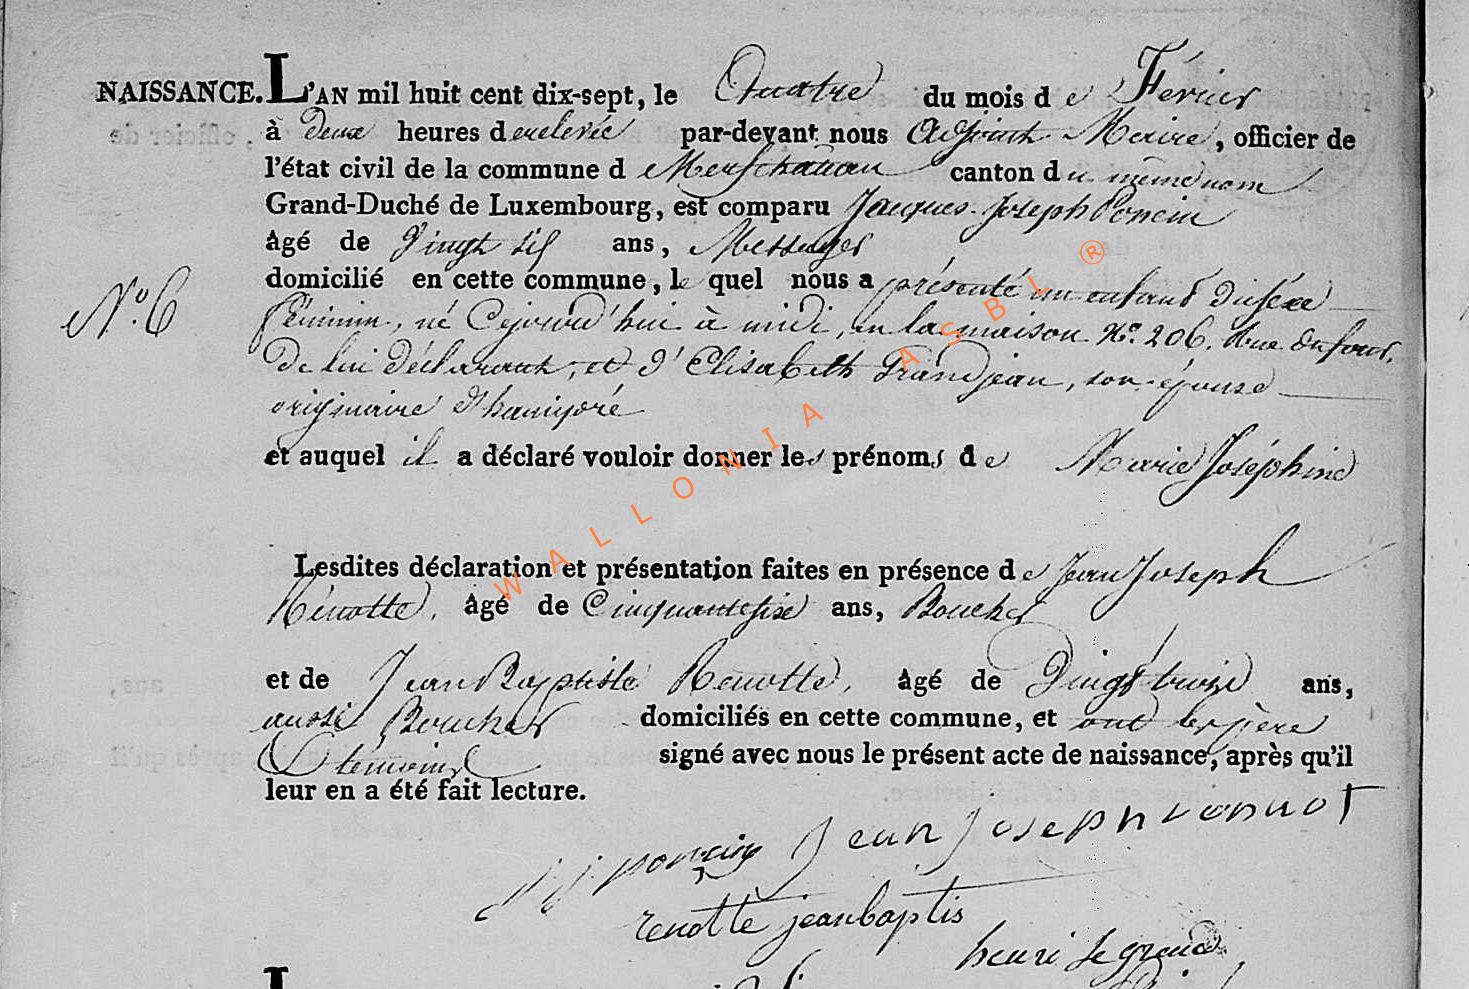 NAISSANCE. L'AN mil huit cent dix-sept, le Quatre du mois de Férier
à deux heures de relevée par-devant nous Adjoint Maire, officier de
l'état civil de la commune d canton du même nom
Grand-Duché de Luxembourg, est comparu Jacques Joseph Poncin
âgé de Vingt six ans, Messager
domicilié en cette commune, le quel nous a présenté un enfant du séxe
N.o 6
féminin, né Cejourd'hui à midi, en la maison N.o 206. Rue du four,
De lui déclarant, et d'Elisabeth Grandjean, son épouse
originaire d'hanipré
et auquel il a déclaré vouloir donner les prénoms de Marie Joséphine
Lesdites déclaration et présentation faites en présence de Jean Joseph
Rénotte, âgé de Cinquante six ans, Boucher
et de Jean Baptiste Renotte, âgé de Vingt troize ans,
aussi Boucher domiciliés en cette commune, et ont les père
& témoins signé avec nous le présent acte de naissance, après qu'il
leur en a été fait lecture.
j j poncin Jean Joseph rennot
renotte jeanbaptis
henri Legrand
WALLONIA ASBL ®
L